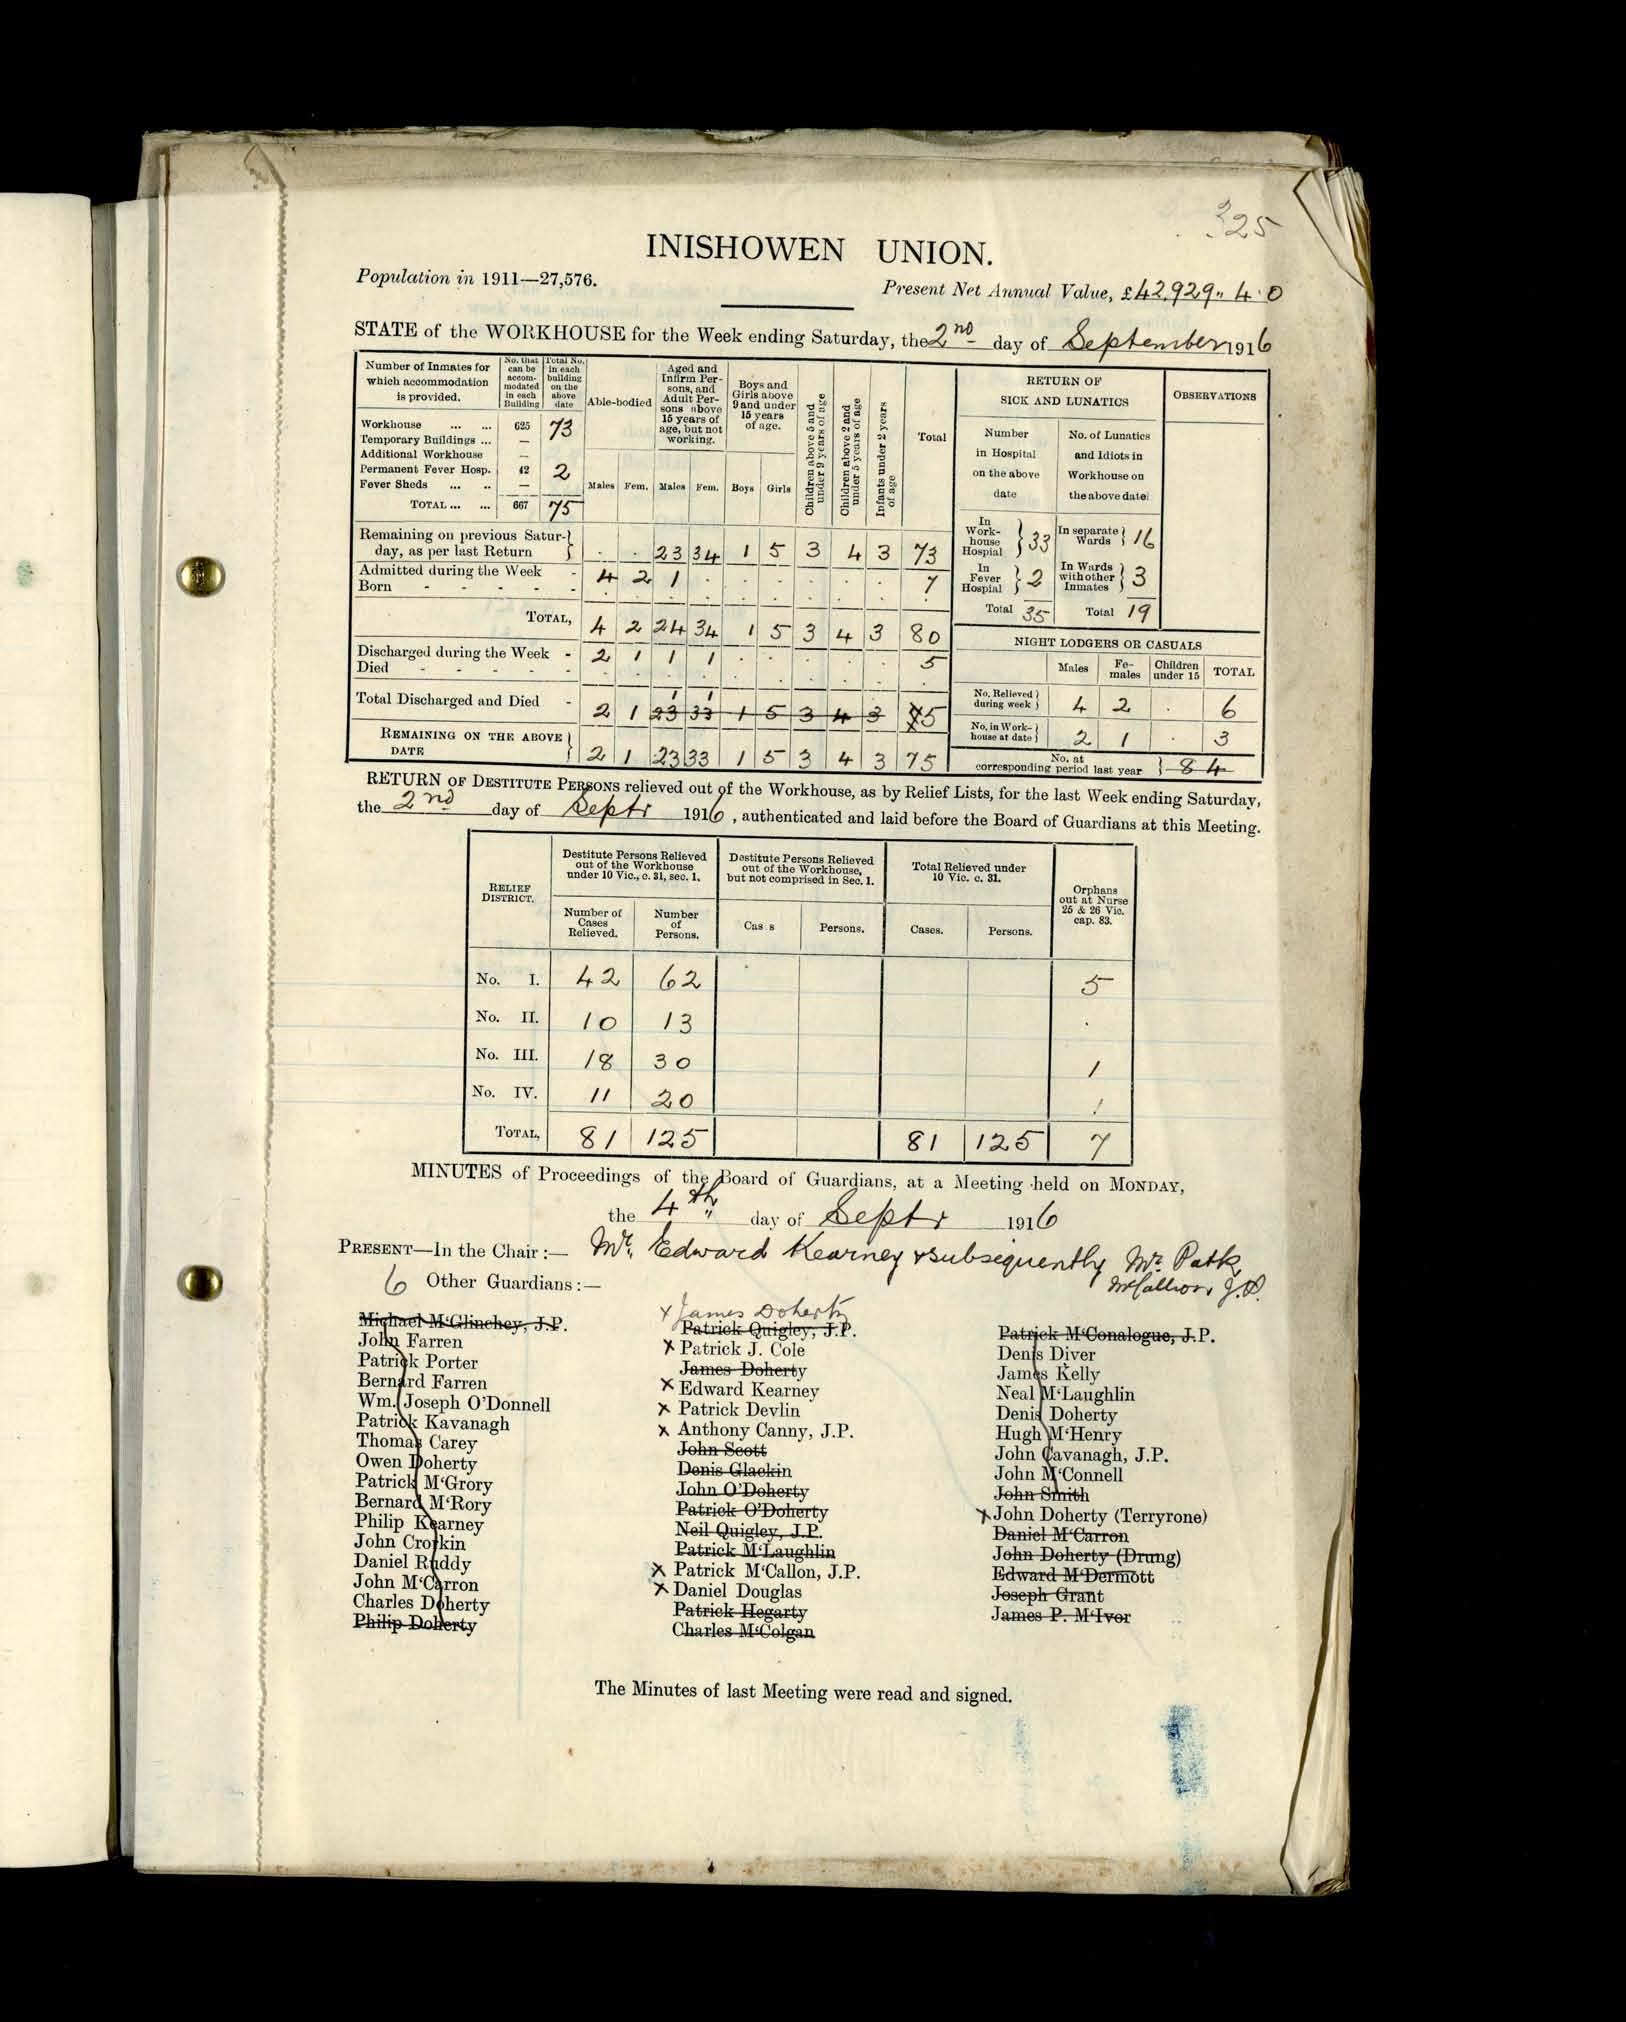 325
INISHOWEN UNION.
Population in 1911—27,576.
Present Net Annual Value, £42,929 " 4 · 0
STATE of the WORKHOUSE for the Week ending Saturday, the 2nd day of September 1916
Number of Inmates for which accommodation is provided. | No. that can be accommodated in each Building | Total No. in each building on the above date
Workhouse ... ... 625 73
Temporary Buildings ... —
Additional Workhouse —
Permanent Fever Hosp. 42 2
Fever Sheds ... .. —
TOTAL ... ... 667 75
Able-bodied | Aged and Infirm Persons, and Adult Persons above 15 years of age, but not working. | Boys and Girls above 9 and under 15 years of age. | Children above 5 and under 9 years of age | Children above 2 and under 5 years of age | Infants under 2 years of age | Total
Males | Fem. | Males | Fem. | Boys | Girls
Remaining on previous Saturday, as per last Return } . . 23 34 1 5 3 4 3 73
Admitted during the Week - 4 2 1 . . . . . . 7
Born - - - - - . . . . . . . . . .
TOTAL, 4 2 24 34 1 5 3 4 3 80
Discharged during the Week - 2 1 1 1 . . . . . 5
Died - - - - - . . . . . . . . . .
1 1
Total Discharged and Died - 2 1 23 33 1 5 3 4 3 75
REMAINING ON THE ABOVE DATE } 2 1 23 33 1 5 3 4 3 75
RETURN OF SICK AND LUNATICS
Number in Hospital on the above date | No. of Lunatics and Idiots in Workhouse on the above date
In Workhouse Hospial } 33 | In separate Wards } 16
In Fever Hospial } 2 | In Wards with other Inmates } 3
Total 35 | Total 19
OBSERVATIONS
NIGHT LODGERS OR CASUALS
Males | Females | Children under 15 | TOTAL
No. Relieved during week } 4 2 . 6
No. in Workhouse at date } 2 1 . 3
No. at corresponding period last year } 84
RETURN OF DESTITUTE PERSONS relieved out of the Workhouse, as by Relief Lists, for the last Week ending Saturday,
the 2nd day of Septr 1916, authenticated and laid before the Board of Guardians at this Meeting.
RELIEF DISTRICT. | Destitute Persons Relieved out of the Workhouse under 10 Vic., c. 31, sec. 1. | Destitute Persons Relieved out of the Workhouse, but not comprised in Sec. 1. | Total Relieved under 10 Vic. c. 31. | Orphans out at Nurse 25 & 26 Vic. cap. 83.
Number of Cases Relieved. | Number of Persons. | Cas s | Persons. | Cases. | Persons.
No. I. 42 62 5
No. II. 10 13 .
No. III. 18 30 1
No. IV. 11 20 1
TOTAL, 81 125 81 125 7
MINUTES of Proceedings of the Board of Guardians, at a Meeting held on MONDAY,
the 4th day of Septr 1916
PRESENT—In the Chair :— Mr. Edward Kearney & subsequently Mr. Patk
McCallion, J.P.
6 Other Guardians :—
Michael M'Glinchey, J.P.
John Farren
Patrick Porter
Bernard Farren
Wm. Joseph O'Donnell
Patrick Kavanagh
Thomas Carey
Owen Doherty
Patrick M'Grory
Bernard M'Rory
Philip Kearney
John Crofkin
Daniel Ruddy
John M'Carron
Charles Doherty
Philip Doherty
x James Doherty
Patrick Quigley, J.P.
x Patrick J. Cole
James Doherty
x Edward Kearney
x Patrick Devlin
x Anthony Canny, J.P.
John Scott
Denis Glackin
John O'Doherty
Patrick O'Doherty
Neil Quigley, J.P.
Patrick M'Laughlin
x Patrick M'Callon, J.P.
x Daniel Douglas
Patrick Hegarty
Charles M'Colgan
Patrick M'Conalogue, J.P.
Denis Diver
James Kelly
Neal M'Laughlin
Denis Doherty
Hugh M'Henry
John Cavanagh, J.P.
John M'Connell
John Smith
x John Doherty (Terryrone)
Daniel M'Carron
John Doherty (Drung)
Edward M'Dermott
Joseph Grant
James P. M'Ivor
The Minutes of last Meeting were read and signed.